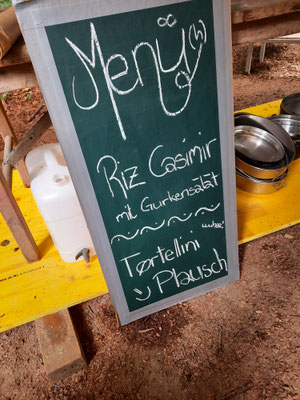 Menü (h)
Riz Casimir
mit Gurkensalat
Tørtellini
Plausch